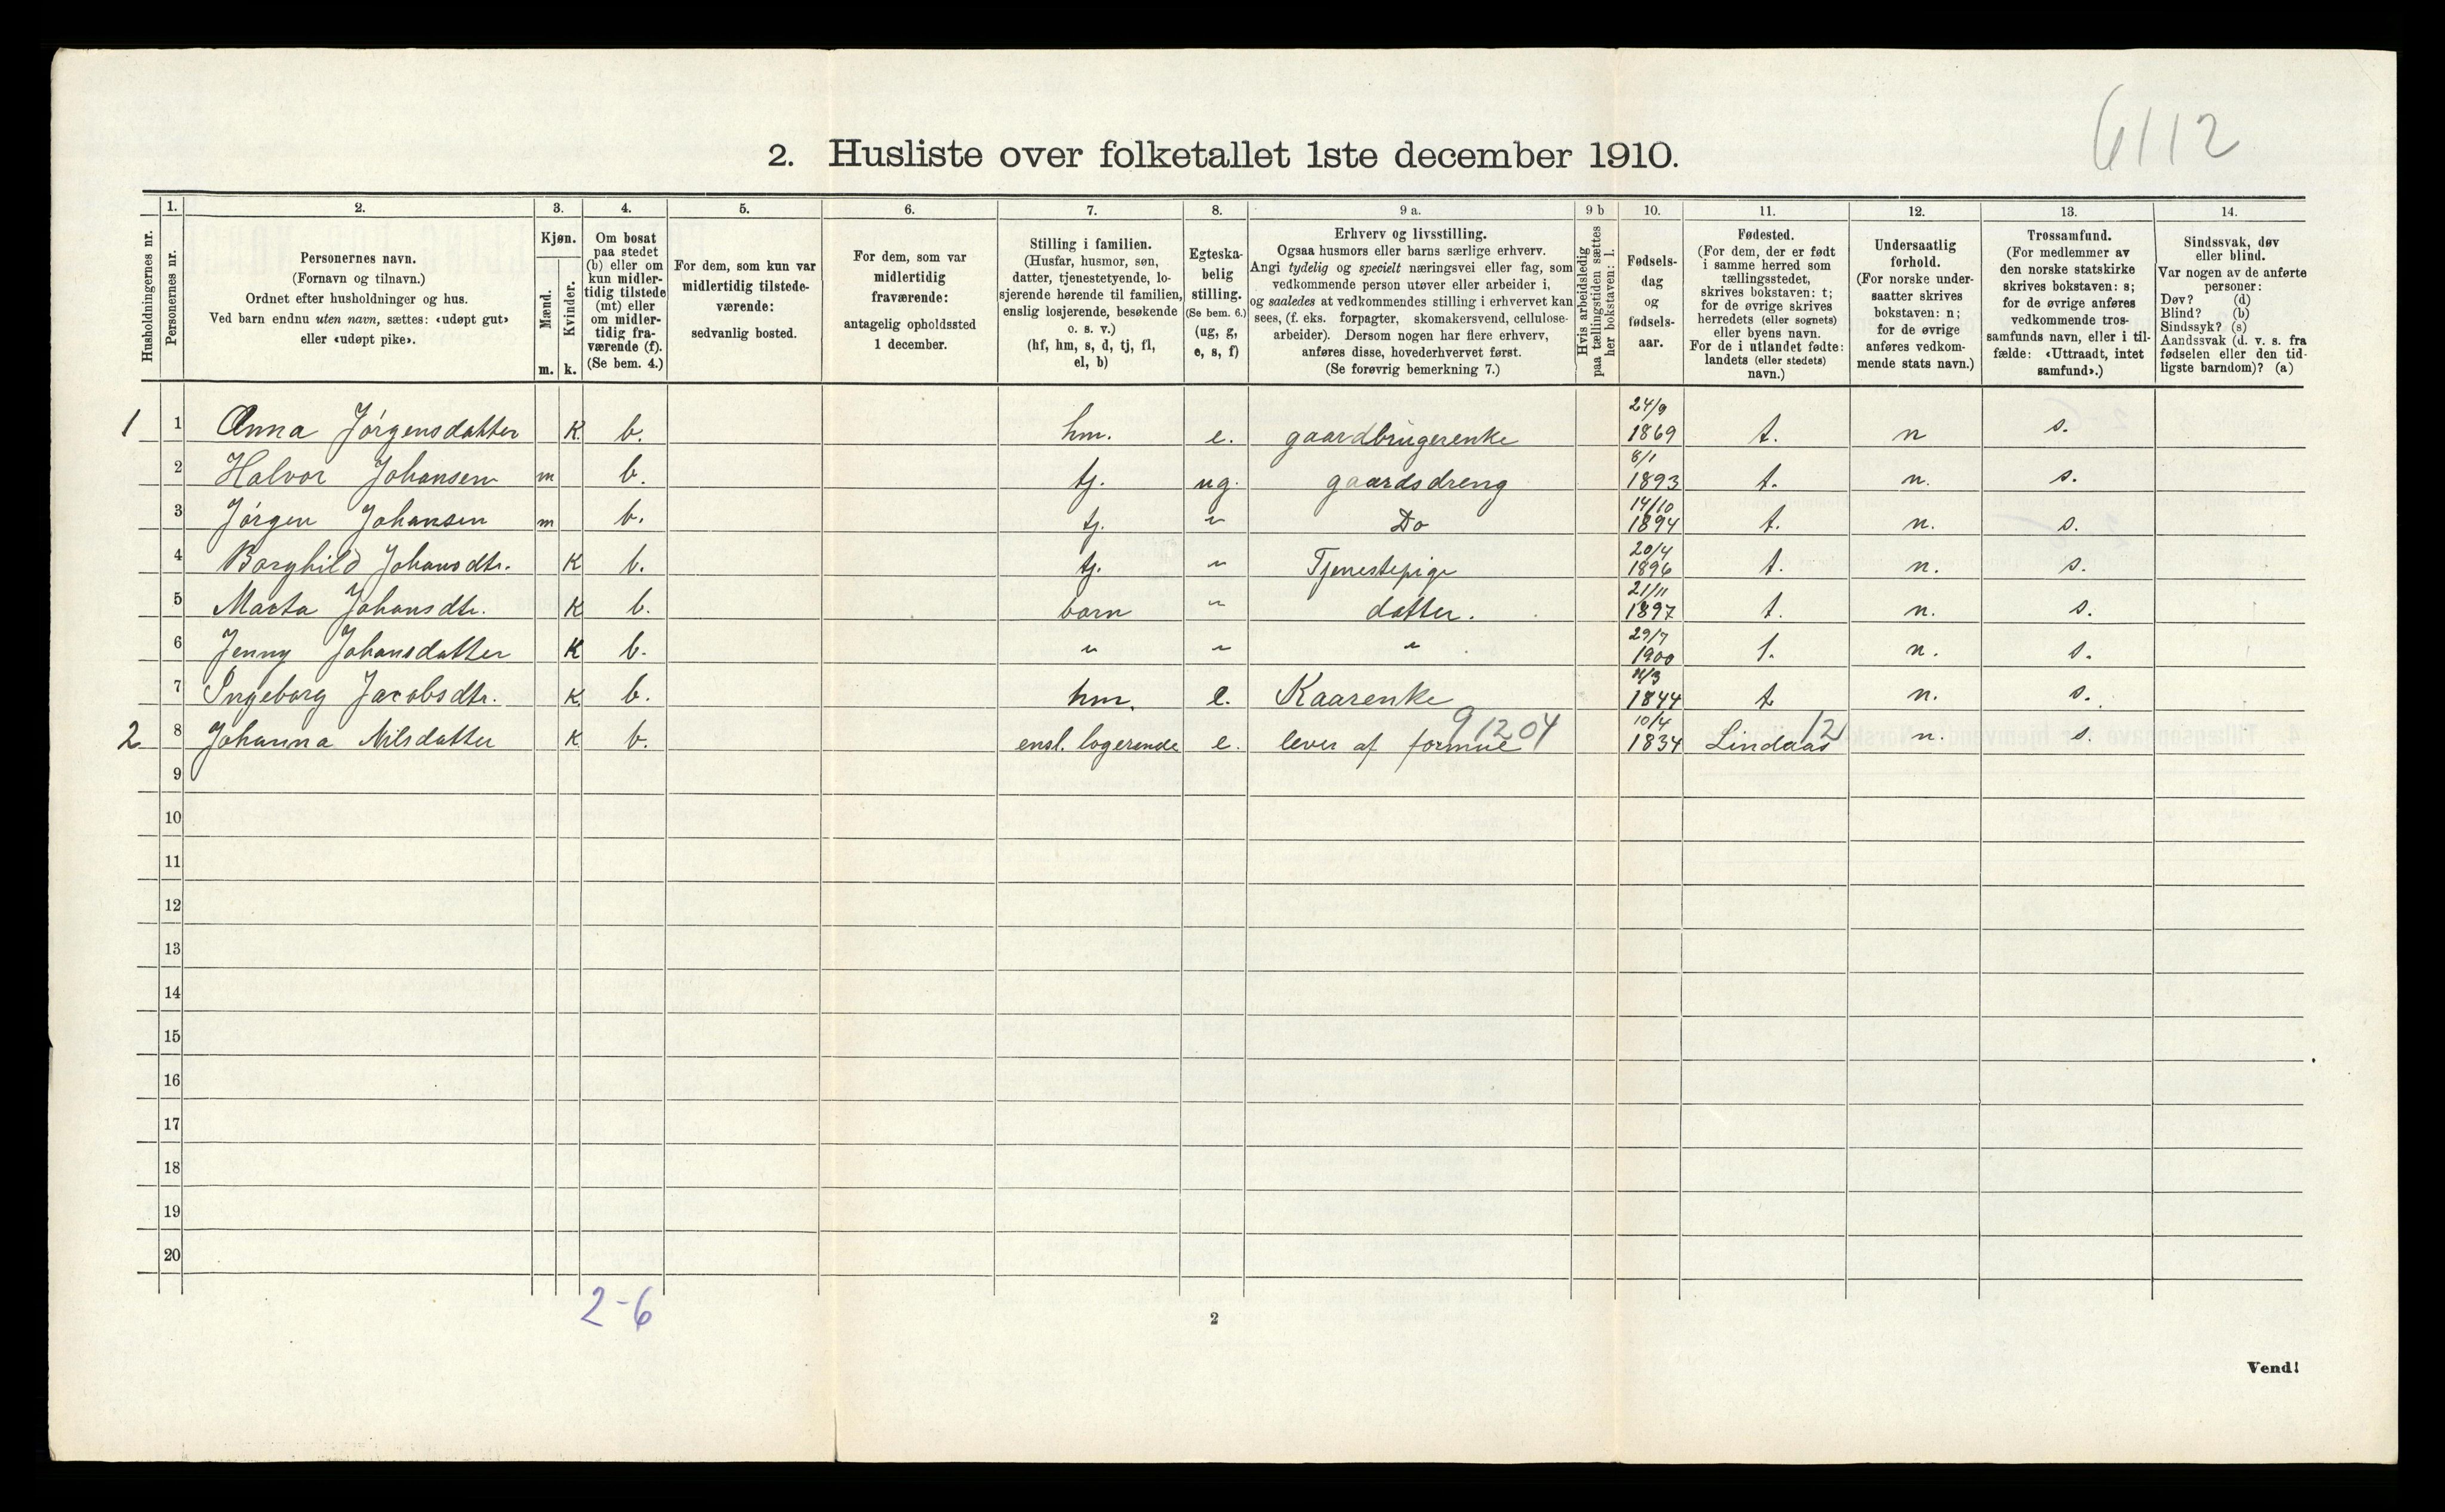 6112
2. Husliste over folketallet 1ste december 1910.
Husholdningernes nr.
1.
Personernes nr.
2.
Personernes navn.
(Fornavn og tilnavn.)
Ordnet efter husholdninger og hus.
Ved barn endnu uten navn, sættes: «udøpt gut»
eller «udøpt pike».
3.
Kjøn.
Mænd.
Kvinder.
m. k.
4.
Om bosat
paa stedet
(b) eller om
kun midler-
tidig tilstede
(mt) eller
om midler-
tidig fra-
værende (f).
(Se bem. 4.)
5.
For dem, som kun var
midlertidig tilstede-
værende:
sedvanlig bosted.
6.
For dem, som var
midlertidig
fraværende:
antagelig opholdssted
1 december.
7.
Stilling i familien.
(Husfar, husmor, søn,
datter, tjenestetyende, lo-
sjerende hørende til familien,
enslig losjerende, besøkende
o. s. v.)
(hf, hm, s, d, tj, fl,
el, b)
8.
Egteska-
belig
stilling.
(Se bem. 6.)
(ug, g,
e, s, f)
9 a.
Erhverv og livsstilling.
Ogsaa husmors eller barns særlige erhverv.
Angi tydelig og specielt næringsvei eller fag, som
vedkommende person utøver eller arbeider i,
og saaledes at vedkommendes stilling i erhvervet kan
sees, (f. eks. forpagter, skomakersvend, cellulose-
arbeider). Dersom nogen har flere erhverv,
anføres disse, hovederhvervet først.
(Se forøvrig bemerkning 7.)
9 b
Hvis arbeidsledig
paa tællingstiden sættes
her bokstaven: l.
10.
Fødsels-
dag
og
fødsels-
aar.
11.
Fødested.
(For dem, der er født
i samme herred som
tællingsstedet,
skrives bokstaven: t;
for de øvrige skrives
herredets (eller sognets)
eller byens navn.
For de i utlandet fødte:
landets (eller stedets)
navn.)
12.
Undersaatlig
forhold.
(For norske under-
saatter skrives
bokstaven: n;
for de øvrige
anføres vedkom-
mende stats navn.)
13.
Trossamfund.
(For medlemmer av
den norske statskirke
skrives bokstaven: s;
for de øvrige anføres
vedkommende tros-
samfunds navn, eller i til-
fælde: «Uttraadt, intet
samfund».)
14.
Sindssvak, døv
eller blind.
Var nogen av de anførte
personer:
Døv? (d)
Blind? (b)
Sindssyk? (s)
Aandssvak (d. v. s. fra
fødselen eller den tid-
ligste barndom)? (a)
1 1 Anna Jørgensdatter K b. hm. e. gaardbrugerenke 24/9 1869 t. n s.
2 Halvor Johansen m b. tj. ug. gaardsdreng 8/1 1893 t. n. s.
3 Jørgen Johansen m b. tj. " Do 14/10 1894 t. n. s.
4 Borghild Johansdtr. K b. tj. " Tjenestepige 20/4 1896 t. n. s.
5 Marta Johansdtr. K b. barn " datter. 21/11 1897 t. n. s.
6 Jenny Johansdatter K b. " " " 29/7 1900 t. n. s.
7 Ingeborg Jacobsdtr. K b. hm. e. Kaarenke 1844 t n. s.
2 8 Johanna Nilsdatter K b. ensl. logerende e. lever af formue 91204 10/4 1834 Lindaas 12 n. s.
9
10
11
12
13
14
15
16
17
18
19
20
2-6
2
Vend!